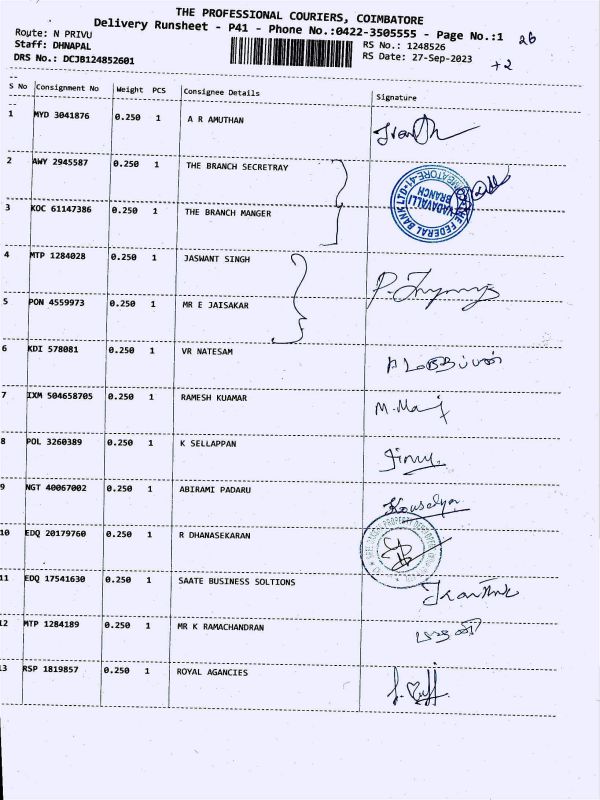 THE PROFESSIONAL COURIERS, COIMBATORE
Delivery Runsheet - P41 - Phone No.:0422-3505555 - Page No.:1 26
Route: N PRIVU RS No.: 1248526
Staff: DHNAPAL RS Date: 27-Sep-2023 +2
DRS No.: DCJB124852601
S No Consignment No Weight PCS Consignee Details Signature
1 MYD 3041876 0.250 1 A R AMUTHAN
2 AWY 2945587 0.250 1 THE BRANCH SECRETRAY
THE FEDERAL BANK LTD
VADAVALLI
BRANCH
COIMBATORE-41
3 KOC 61147386 0.250 1 THE BRANCH MANGER
4 MTP 1284028 0.250 1 JASWANT SINGH
5 PON 4559973 0.250 1 MR E JAISAKAR
6 KDI 578081 0.250 1 VR NATESAM
7 IXM 504658705 0.250 1 RAMESH KUAMAR M. Maj
8 POL 3260389 0.250 1 K SELLAPPAN
9 NGT 40067002 0.250 1 ABIRAMI PADARU Kouselya
10 EDQ 20179760 0.250 1 R DHANASEKARAN
11 EDQ 17541630 0.250 1 SAATE BUSINESS SOLTIONS
12 MTP 1284189 0.250 1 MR K RAMACHANDRAN
13 RSP 1819857 0.250 1 ROYAL AGANCIES